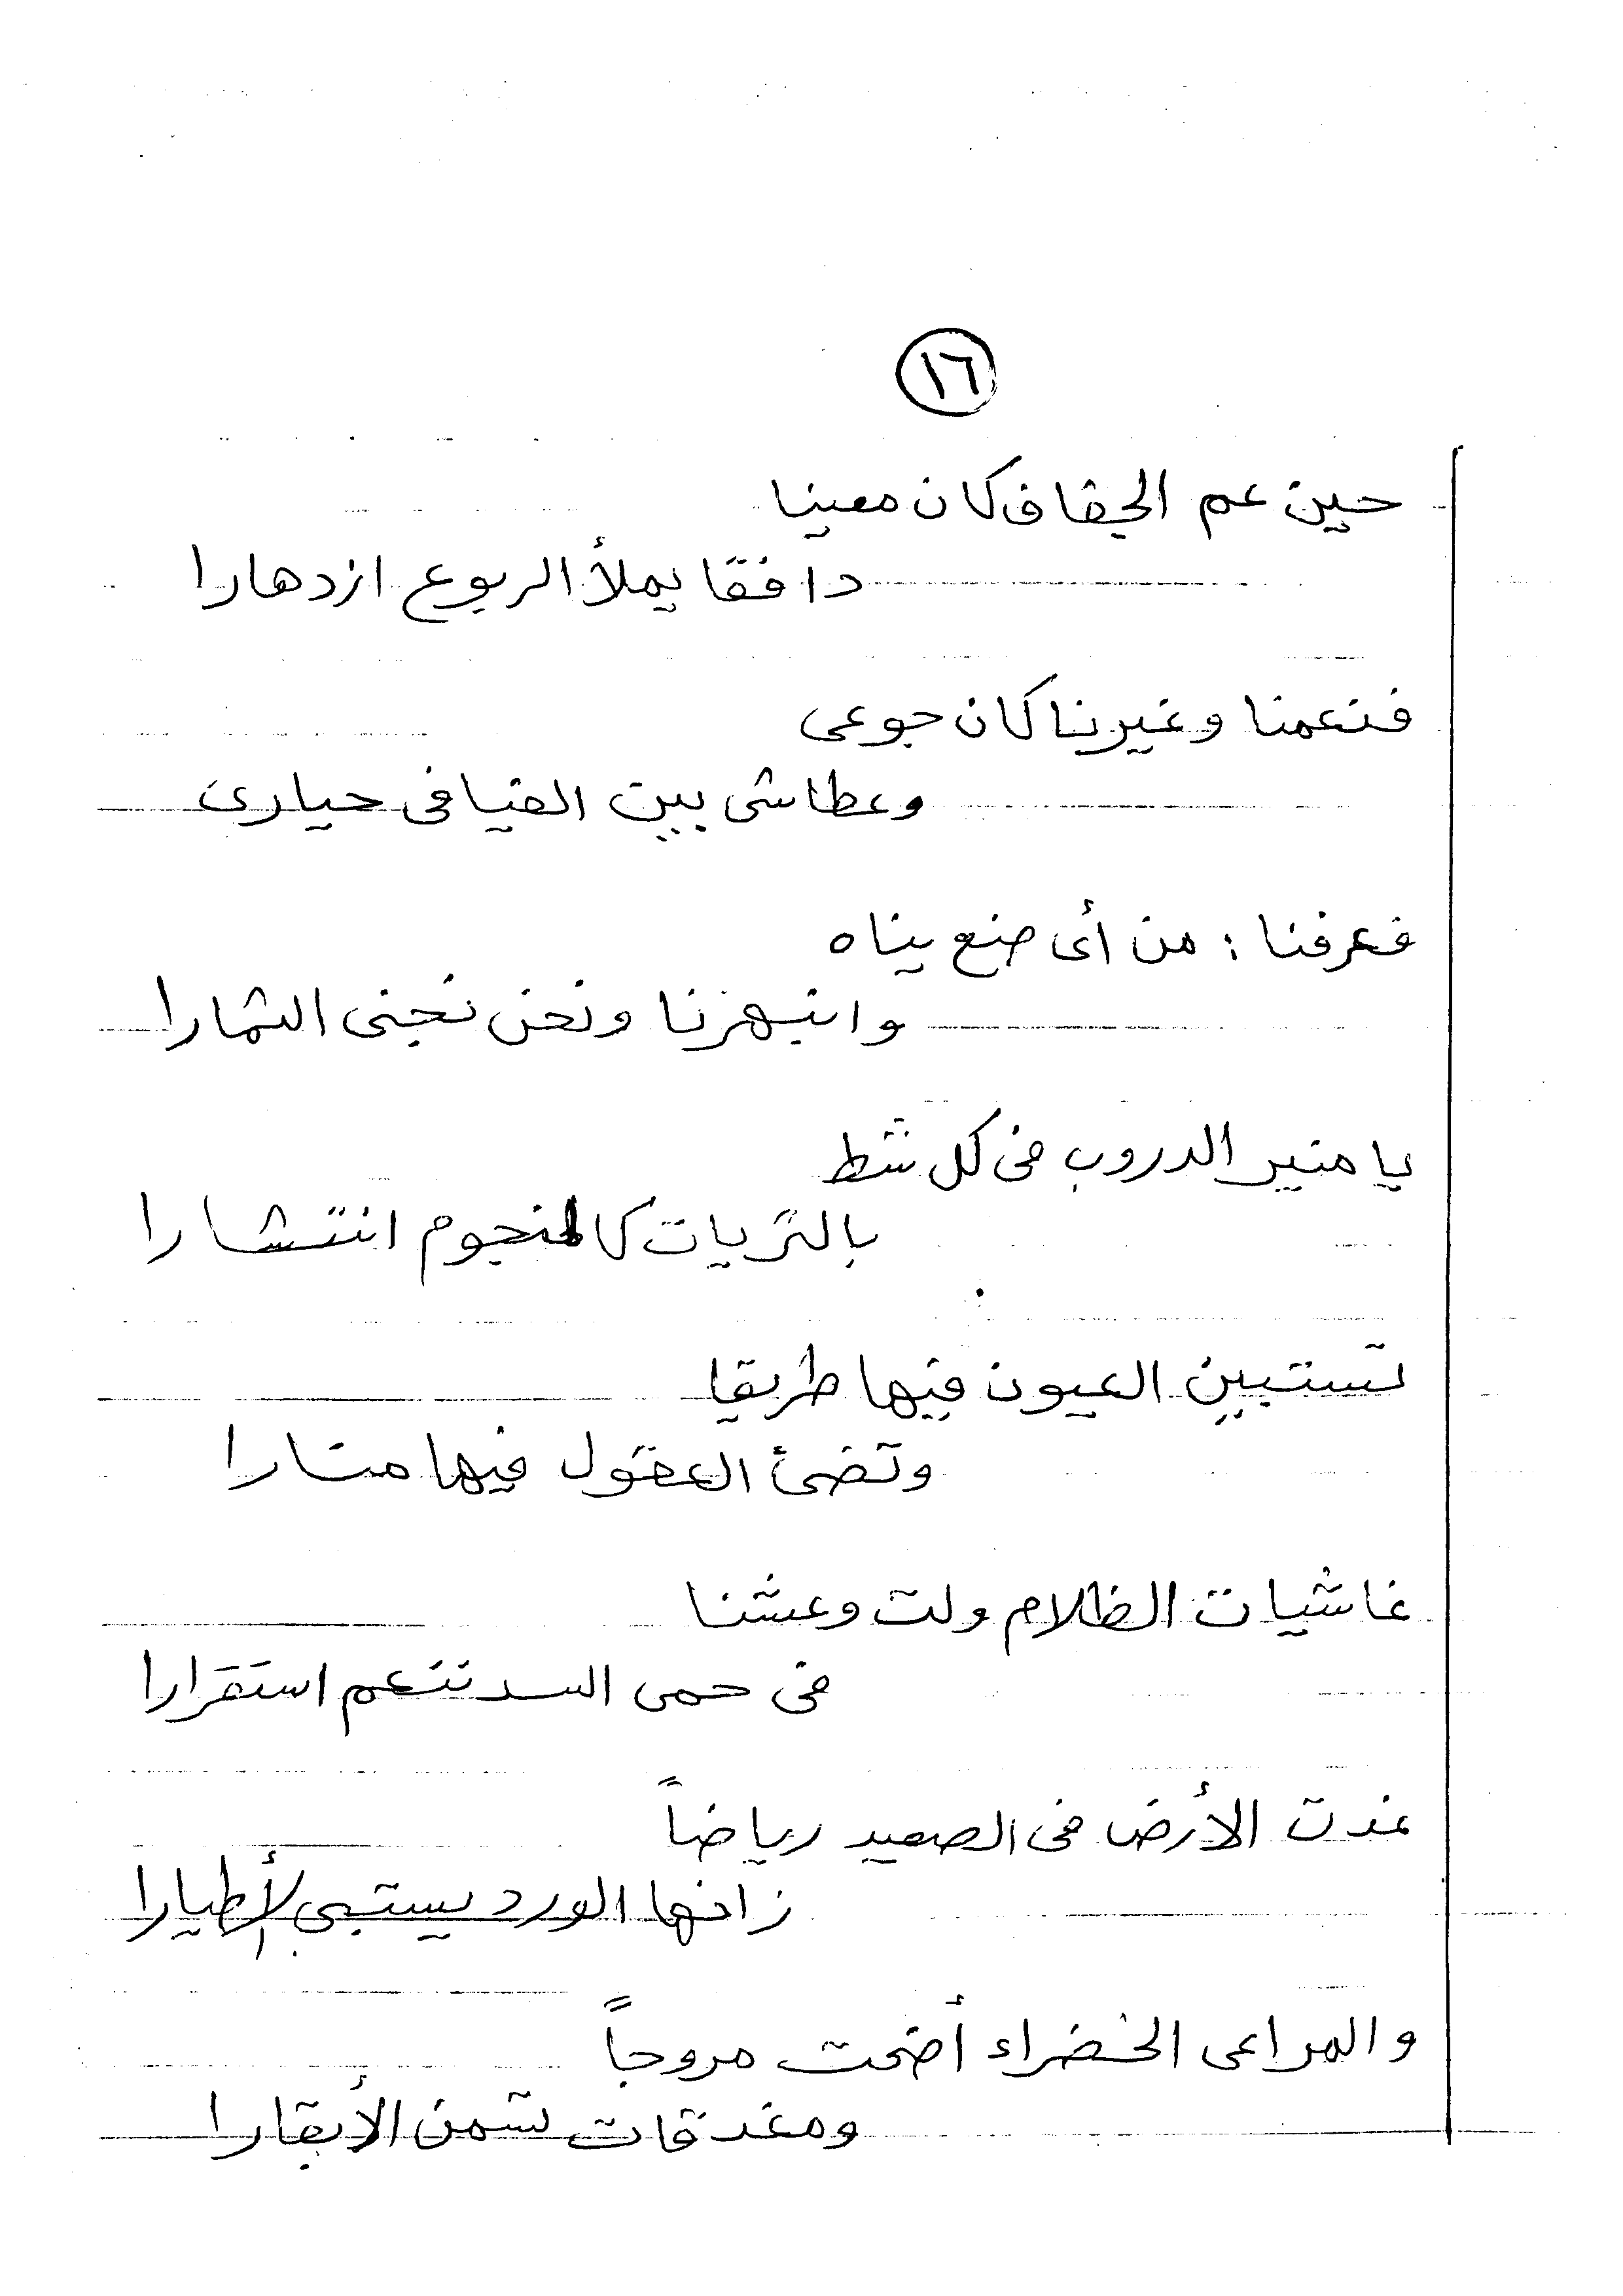 ١٦
حين عم الجفاف كان معينا
دافقا يملأ الربوع ازدهارا
فنعمنا وغيرنا كان جوعى
وعطاشى بين الفيافى حيارى
فعرفنا : من أى صنع بناه
وانبهرنا ونحن نجنى الثمارا
يا منير الدروب فى كل شط
بالثريات كالنجوم انتشارا
تستبين العيون فيها طريقا
وتضئ العقول فيها منارا
غاشيات الظلام ولت وعشنا
فى حمى السد ننعم استقرارا
غدت الأرض فى الصعيد رياضاً
زانها الورد يستبى الأطيارا
والمراعى الخضراء أضحت مروجاً
ومغدقات تسمن الأبقارا